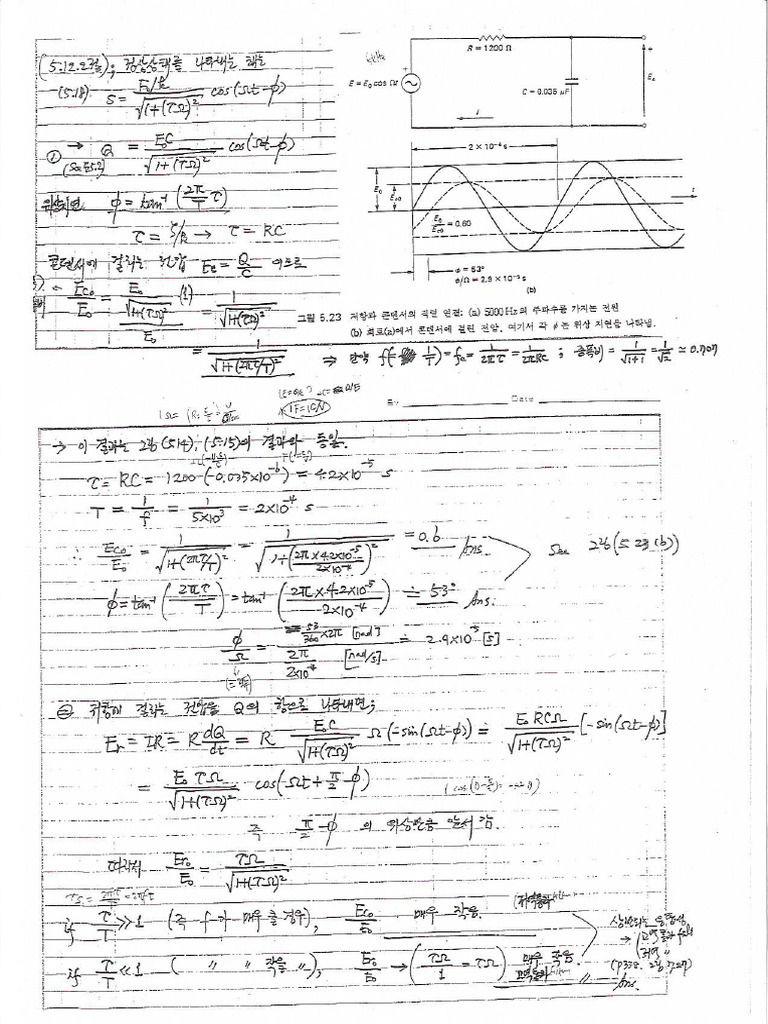 (5.12.2절); 정상상태를 나타내는 해는
(5.18) S = E₀/k / √(1+(τΩ)²) cos(Ωt-φ)
① → Q = E₀C / √(1+(τΩ)²) cos(Ωt-φ)
위상지연 φ = tan⁻¹(2π/T τ)
τ = ζ/k → τ = RC
콘덴서에 걸리는 전압 Ec = Q/C 이므로
Ec₀/E₀ = E₀/√(1+(τΩ)²) / E₀ (1) = 1/√(1+(τΩ)²)
= 1/√(1+(2πτ/T)²)
⇒ 만약 f(= 1/T) = fc = 1/2πτ = 1/2πRC ; 증폭비 = 1/√(1+1) = 1/√2 ≃ 0.707
R = 1200 Ω
E = E₀ cos Ωt
C = 0.035 μF
Ec
i
2 × 10⁻⁴ s
E₀
Ec₀
t
E₀/Ec₀ = 0.60
φ = 53°
φ/Ω = 2.9 × 10⁻⁵ s
(b)
그림 5.23 저항과 콘덴서의 직렬 연결: (a) 5000 Hz의 주파수를 가지는 전원
(b) 회로(a)에서 콘덴서에 걸린 전압. 여기서 각 φ는 위상 지연을 나타냄.
1F=1C/V
By Date
→ 이 결과는 그림(5.14), (5.15)의 결과와 동일.
τ = RC = 1200 (0.035×10⁻⁶) = 4.2×10⁻⁵ s
T = 1/f = 1/5×10³ = 2×10⁻⁴ s
∴ Ec₀/E₀ = 1/√(1+(2πτ/T)²) = 1/√(1+(2π×4.2×10⁻⁵/2×10⁻⁴)²) = 0.6 Ans.
See 그림(5.23(b))
φ = tan⁻¹(2πτ/T) = tan⁻¹(2π×4.2×10⁻⁵/2×10⁻⁴) ≒ 53° Ans.
φ/Ω = 53/360 ×2π [rad] / 2π/2×10⁻⁴ [rad/s] ≒ 2.9×10⁻⁵ [s]
② 저항에 걸리는 전압을 Q의 항으로 나타내면;
Er = IR = R dQ/dt = R E₀C/√(1+(τΩ)²) Ω(-sin(Ωt-φ)) = E₀RCΩ/√(1+(τΩ)²) [-sin(Ωt-φ)]
= E₀τΩ/√(1+(τΩ)²) cos(Ωt+π/2-φ)
즉 π/2-φ 의 위상만큼 앞서 감.
따라서 Er₀/E₀ = τΩ/√(1+(τΩ)²)
if τ/T ≫ 1 (즉 f가 매우 클 경우), Ec₀/E₀ 매우 작음.
if τ/T ≪ 1 ( 〃 〃 작을 〃), E₀/E₀ → (τΩ/1 = τΩ) 매우 작음
Ans.